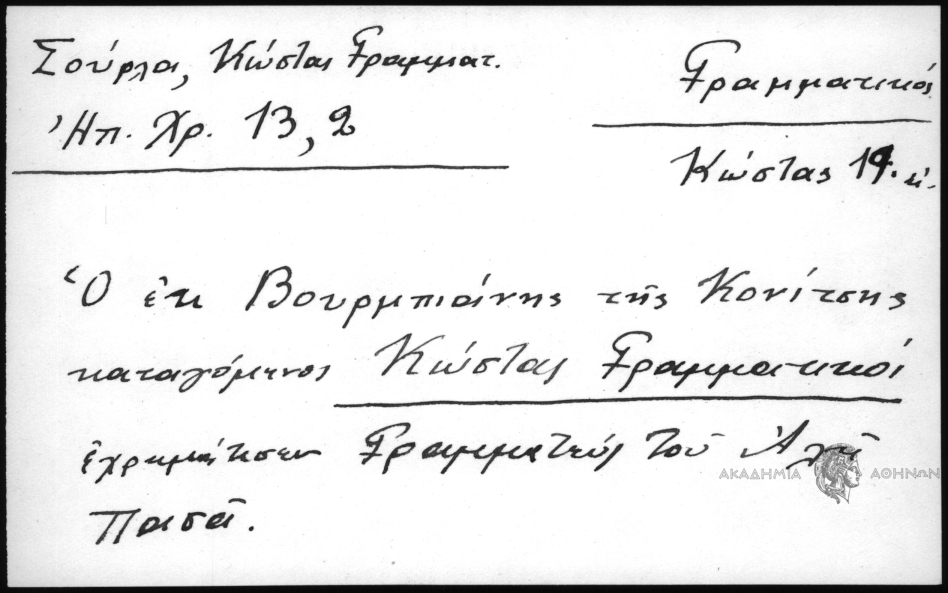 Σούρλα, Κώστας Γραμματ.
Ἠπ. Χρ. 13, 2
Γραμματικός
Κώστας 19. αἰ.
Ὁ ἐκ Βουρμπιάνης τῆς Κονίτσης
καταγόμενος Κώστας Γραμματικός
ἐχρημάτισεν Γραμματεύς τοῦ Ἀλῆ
Πασᾶ.
ΑΚΑΔΗΜΙΑ ΑΘΗΝΩΝ